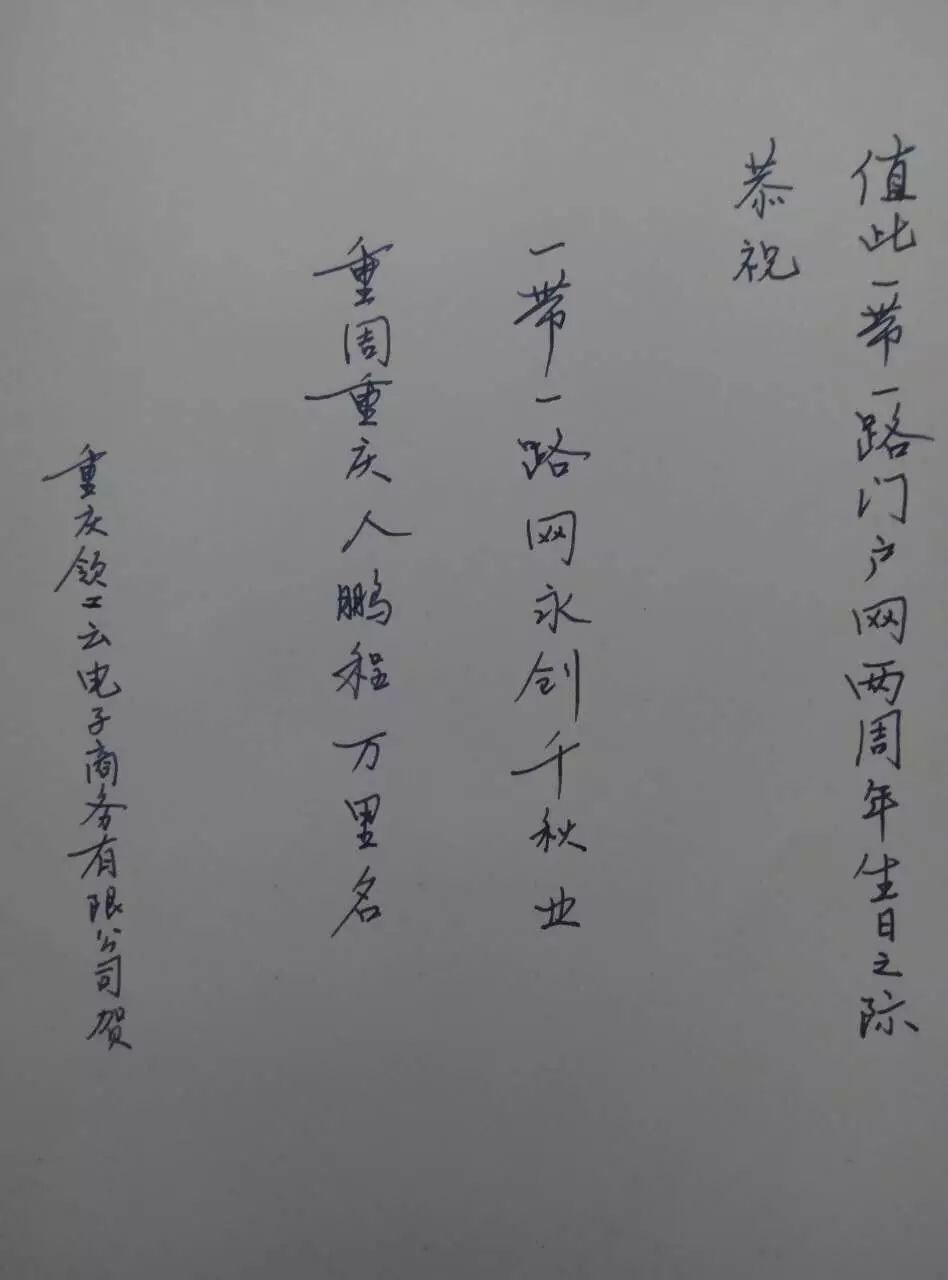 值此一带一路门户网两周年生日之际
恭祝
一带一路网永创千秋业
重周重庆人鹏程万里名
重庆领工云电子商务有限公司贺